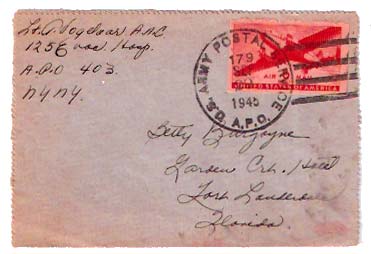 Lt. A. ANC
1256 Hosp.
A.P.O 403.
NY NY.
U.S. ARMY POSTAL SERVICE
A.P.O.
179
1945
AIR MAIL
UNITED STATES OF AMERICA
Betty Burgoyne
Garden Crt. Hotel
Fort Lauderdale
Florida.